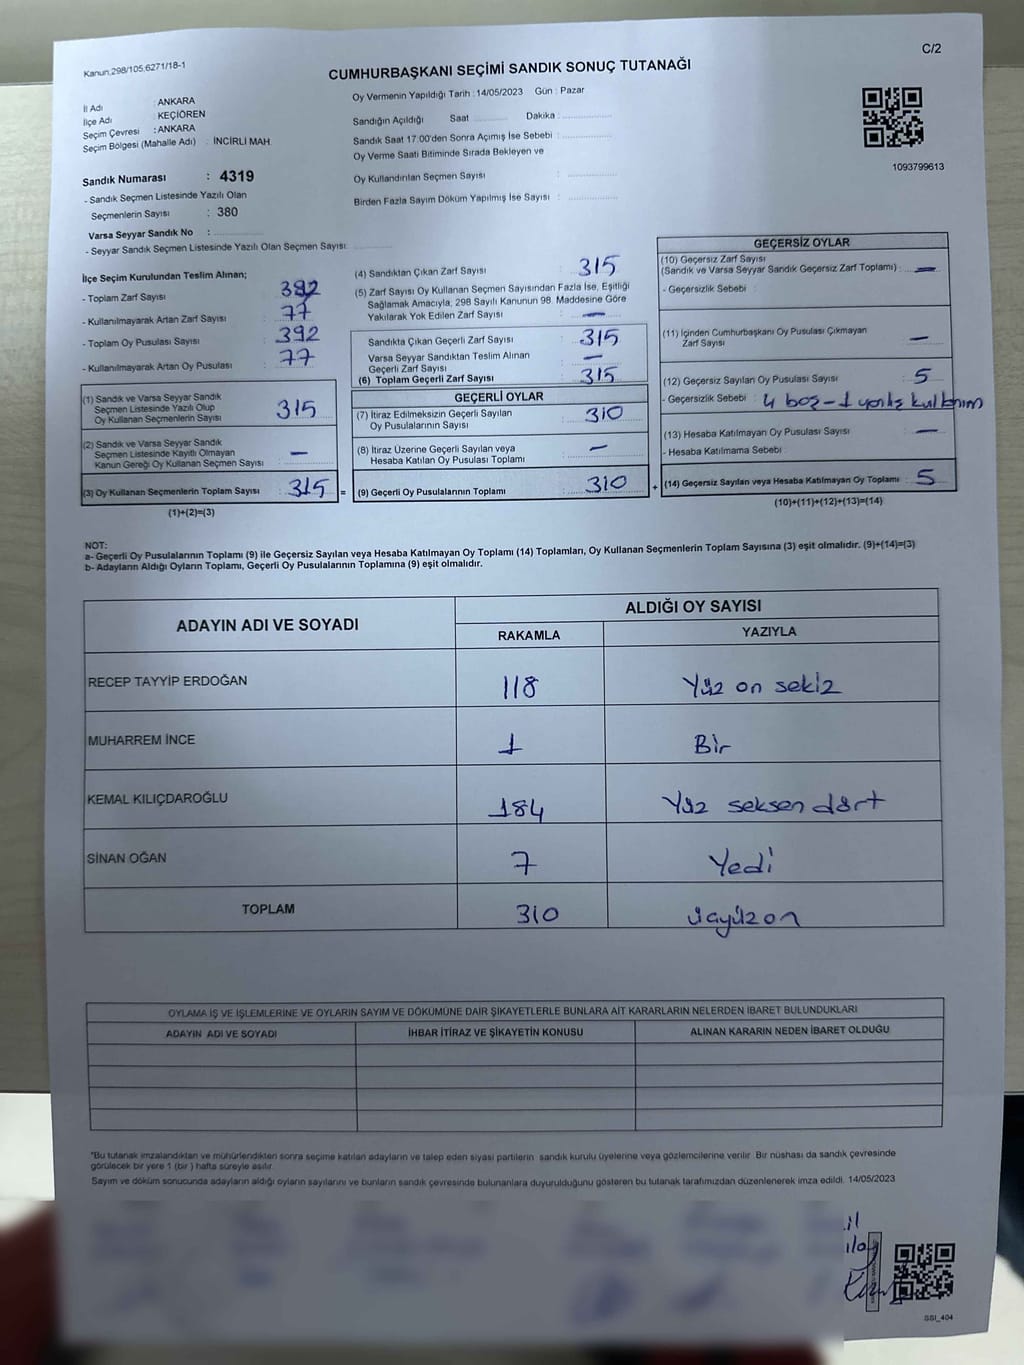 Kanun,298/105,6271/18-1
C/2
CUMHURBAŞKANI SEÇİMİ SANDIK SONUÇ TUTANAĞI
İl Adı : ANKARA
İlçe Adı : KEÇİÖREN
Seçim Çevresi : ANKARA
Seçim Bölgesi (Mahalle Adı) : İNCİRLİ MAH.
Sandık Numarası : 4319
- Sandık Seçmen Listesinde Yazılı Olan
Seçmenlerin Sayısı : 380
Varsa Seyyar Sandık No :
- Seyyar Sandık Seçmen Listesinde Yazılı Olan Seçmen Sayısı:
Oy Vermenin Yapıldığı Tarih : 14/05/2023 Gün : Pazar
Sandığın Açıldığı Saat Dakika :
Sandık Saat 17:00'den Sonra Açımış İse Sebebi :
Oy Verme Saati Bitiminde Sırada Bekleyen ve
Oy Kullandırılan Seçmen Sayısı :
Birden Fazla Sayım Döküm Yapılmış İse Sayısı :
1093799613
İlçe Seçim Kurulundan Teslim Alınan;
- Toplam Zarf Sayısı : 392
- Kullanılmayarak Artan Zarf Sayısı : 77
- Toplam Oy Pusulası Sayısı : 392
- Kullanılmayarak Artan Oy Pusulası : 77
(1) Sandık ve Varsa Seyyar Sandık
Seçmen Listesinde Yazılı Olup
Oy Kullanan Seçmenlerin Sayısı : 315
(2) Sandık ve Varsa Seyyar Sandık
Seçmen Listesinde Kayıtlı Olmayan
Kanun Gereği Oy Kullanan Seçmen Sayısı : —
(3) Oy Kullanan Seçmenlerin Toplam Sayısı : 315 =
(1)+(2)=(3)
(4) Sandıktan Çıkan Zarf Sayısı : 315
(5) Zarf Sayısı Oy Kullanan Seçmen Sayısından Fazla İse, Eşitliği
Sağlamak Amacıyla, 298 Sayılı Kanunun 98. Maddesine Göre
Yakılarak Yok Edilen Zarf Sayısı : —
Sandıkta Çıkan Geçerli Zarf Sayısı : 315
Varsa Seyyar Sandıktan Teslim Alınan
Geçerli Zarf Sayısı : —
(6) Toplam Geçerli Zarf Sayısı : 315
GEÇERLİ OYLAR
(7) İtiraz Edilmeksizin Geçerli Sayılan
Oy Pusulalarının Sayısı : 310
(8) İtiraz Üzerine Geçerli Sayılan veya
Hesaba Katılan Oy Pusulası Toplamı : —
(9) Geçerli Oy Pusulalarının Toplamı : 310 +
GEÇERSİZ OYLAR
(10) Geçersiz Zarf Sayısı
(Sandık ve Varsa Seyyar Sandık Geçersiz Zarf Toplamı) : —
- Geçersizlik Sebebi :
(11) İçinden Cumhurbaşkanı Oy Pusulası Çıkmayan
Zarf Sayısı : —
(12) Geçersiz Sayılan Oy Pusulası Sayısı : 5
- Geçersizlik Sebebi : 4 boş-1 yanlış kullanım
(13) Hesaba Katılmayan Oy Pusulası Sayısı : —
- Hesaba Katılmama Sebebi :
(14) Geçersiz Sayılan veya Hesaba Katılmayan Oy Toplamı : 5
(10)+(11)+(12)+(13)=(14)
NOT:
a- Geçerli Oy Pusulalarının Toplamı (9) ile Geçersiz Sayılan veya Hesaba Katılmayan Oy Toplamı (14) Toplamları, Oy Kullanan Seçmenlerin Toplam Sayısına (3) eşit olmalıdır. (9)+(14)=(3)
b- Adayların Aldığı Oyların Toplamı, Geçerli Oy Pusulalarının Toplamına (9) eşit olmalıdır.
ADAYIN ADI VE SOYADI ALDIĞI OY SAYISI
RAKAMLA YAZIYLA
RECEP TAYYİP ERDOĞAN 118 Yüz on sekiz
MUHARREM İNCE 1 Bir
KEMAL KILIÇDAROĞLU 184 Yüz seksen dört
SİNAN OĞAN 7 Yedi
TOPLAM 310 üçyüzon
OYLAMA İŞ VE İŞLEMLERİNE VE OYLARIN SAYIM VE DÖKÜMÜNE DAİR ŞİKAYETLERLE BUNLARA AİT KARARLARIN NELERDEN İBARET BULUNDUKLARI
ADAYIN ADI VE SOYADI İHBAR İTİRAZ VE ŞİKAYETİN KONUSU ALINAN KARARIN NEDEN İBARET OLDUĞU
*Bu tutanak imzalandıktan ve mühürlendikten sonra seçime katılan adayların ve talep eden siyasi partilerin sandık kurulu üyelerine veya gözlemcilerine verilir. Bir nüshası da sandık çevresinde
görülecek bir yere 1 (bir ) hafta süreyle asılır.
Sayım ve döküm sonucunda adayların aldığı oyların sayılarını ve bunların sandık çevresinde bulunanlara duyurulduğunu gösteren bu tutanak tarafımızdan düzenlenerek imza edildi. 14/05/2023
SSI_404